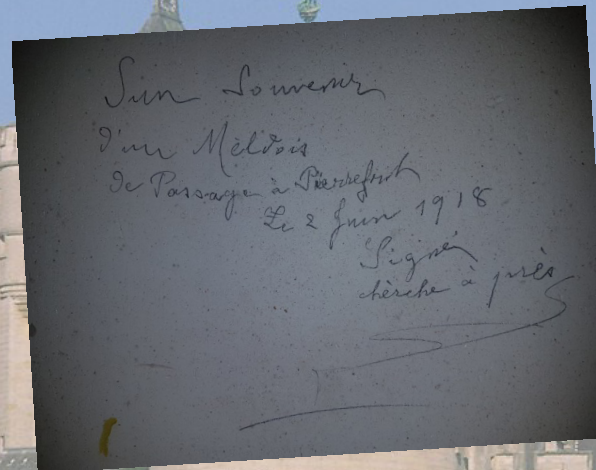 Sun Souvenir
d'un Meldois
de Passage à Pierrefont
Le 2 Juin 1918
Signé
chèrche à près